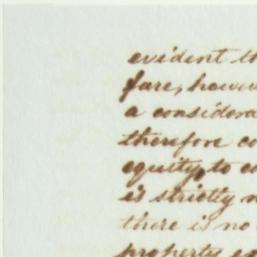 evident th
fare, howev
a considera
therefore co
equity to co
is strictly n
there is no
property